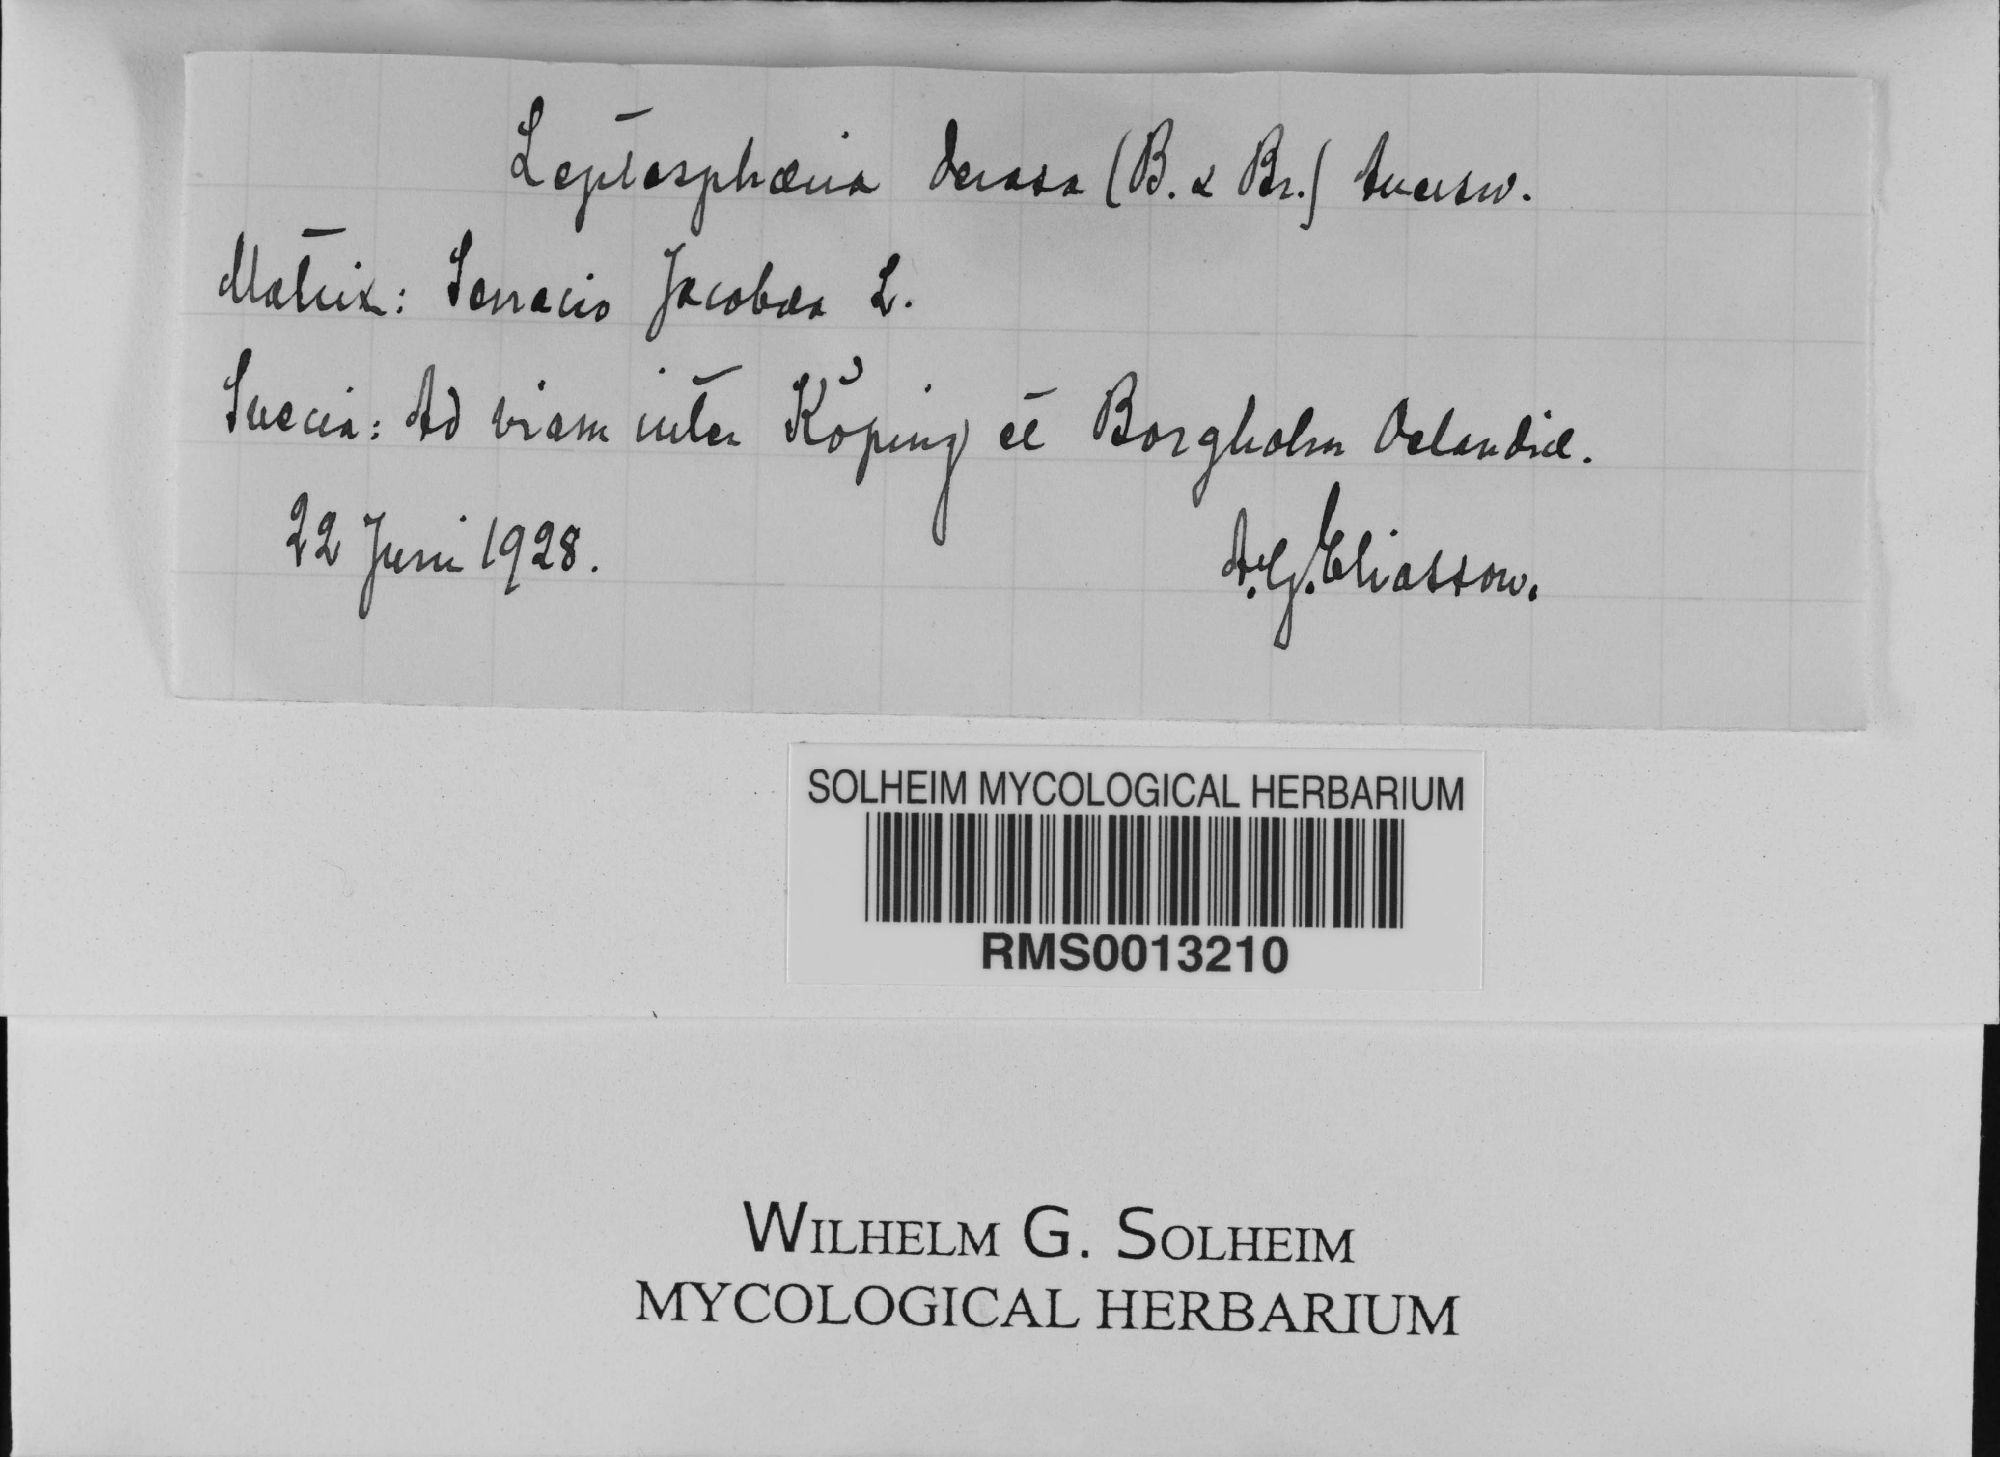 Leptosphæria derasa (B. & Br.) Auersw.
Matrix: Senecio Jacobæa L.
Suecia: Ad viam inter Köping et Borgholm Oelandiæ.
22 Juni 1928.
A. G. Eliasson.
SOLHEIM MYCOLOGICAL HERBARIUM
RMS0013210
WILHELM G. SOLHEIM
MYCOLOGICAL HERBARIUM